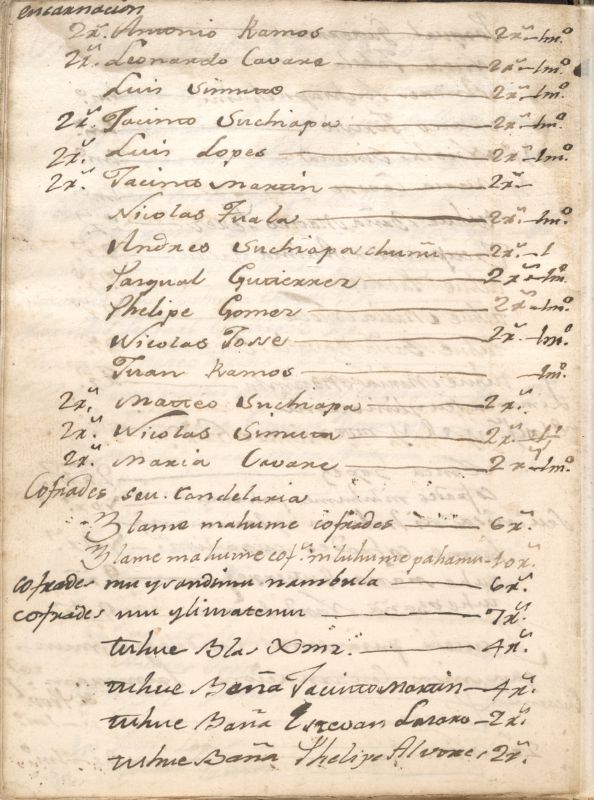 encarnacion
2rs. Antonio Ramos — 2rs. — 1mo.
2rs. Leonardo Cavare — 2rs. — 1mo.
Luis Simuto — 2rs. — 1mo.
2rs. Jacinto Suchiapa — 2rs. — 1mo.
2rs. Luis Lopes — 2rs. — 1mo.
2rs. Jacinto Martin — 2rs. —
Nicolas Tuala — 2rs. — 1mo.
Andres Suchiapa — 2rs. — 1
Pasqual Gutierrez — 2rs. — 1mo.
Phelipe Gomez — 2rs. — 1mo.
Nicolas Tosse — 2rs. — 1mo.
Juan Ramos — 1mo.
2rs. Matteo Suchiapa — 2rs.
2rs. Nicolas Simuta — 2rs.
2rs. Maria Cavare — 2rs. — 1mo.
Cofrades seu. Candelaria
Blame mahume cofrades — 6rs.
Blame mahume cofs. niluhume pahamu — 10rs.
cofrades muysandimu nambula — 6rs.
cofrades mu ylimatemu — 7rs.
tuhue Blas Xmz. — 4rs.
tuhue Baña Jacinto Martin — 4rs.
tuhue Baña Estevan Lazaro — 2rs.
tuhue Baña Phelipe Alvores 2rs.